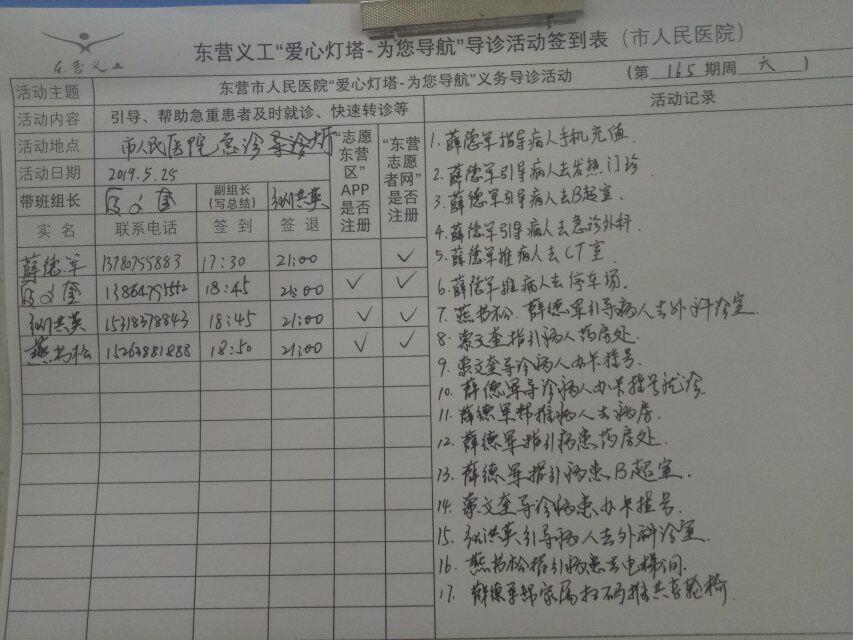 东营义工
东营义工“爱心灯塔-为您导航”导诊活动签到表(市人民医院)
(第 165 期周 六 )
活动主题 东营市人民医院“爱心灯塔-为您导航”义务导诊活动
活动内容 引导、帮助急重患者及时就诊、快速转诊等
活动地点 市人民医院急诊导诊大厅
活动日期 2019.5.25
带班组长 副组长(写总结) 张洪英
“志愿东营区”APP是否注册
“东营志愿者网”是否注册
实名 联系电话 签到 签退
薛德军 13780755883 17:30 21:00 ✓
18:45 21:00 ✓ ✓
张洪英 15318378843 18:45 21:00 ✓ ✓
燕书松 15263881888 18:50 21:00 ✓ ✓
活动记录
1. 薛德军指导病人手机充值.
2. 薛德军引导病人去发热门诊
3. 薛德军引导病人去B超室.
4. 薛德军引导病人去急诊外科
5. 薛德军推病人去CT室
6. 薛德军推病人去停车场.
7. 燕书松、薛德军引导病人去外科诊室
8. 文奎指引病人药房处.
9. 文奎导诊病人办卡挂号.
10. 薛德军导诊病人办卡挂号就诊
11. 薛德军帮推病人去病房.
12. 薛德军指引病患药房处.
13. 薛德军指引病患B超室.
14. 文奎导诊病患办卡挂号.
15. 张洪英引导病人去外科诊室.
16. 燕书松指引病患去电梯间.
17. 薛德军帮家属扫码推共享轮椅.